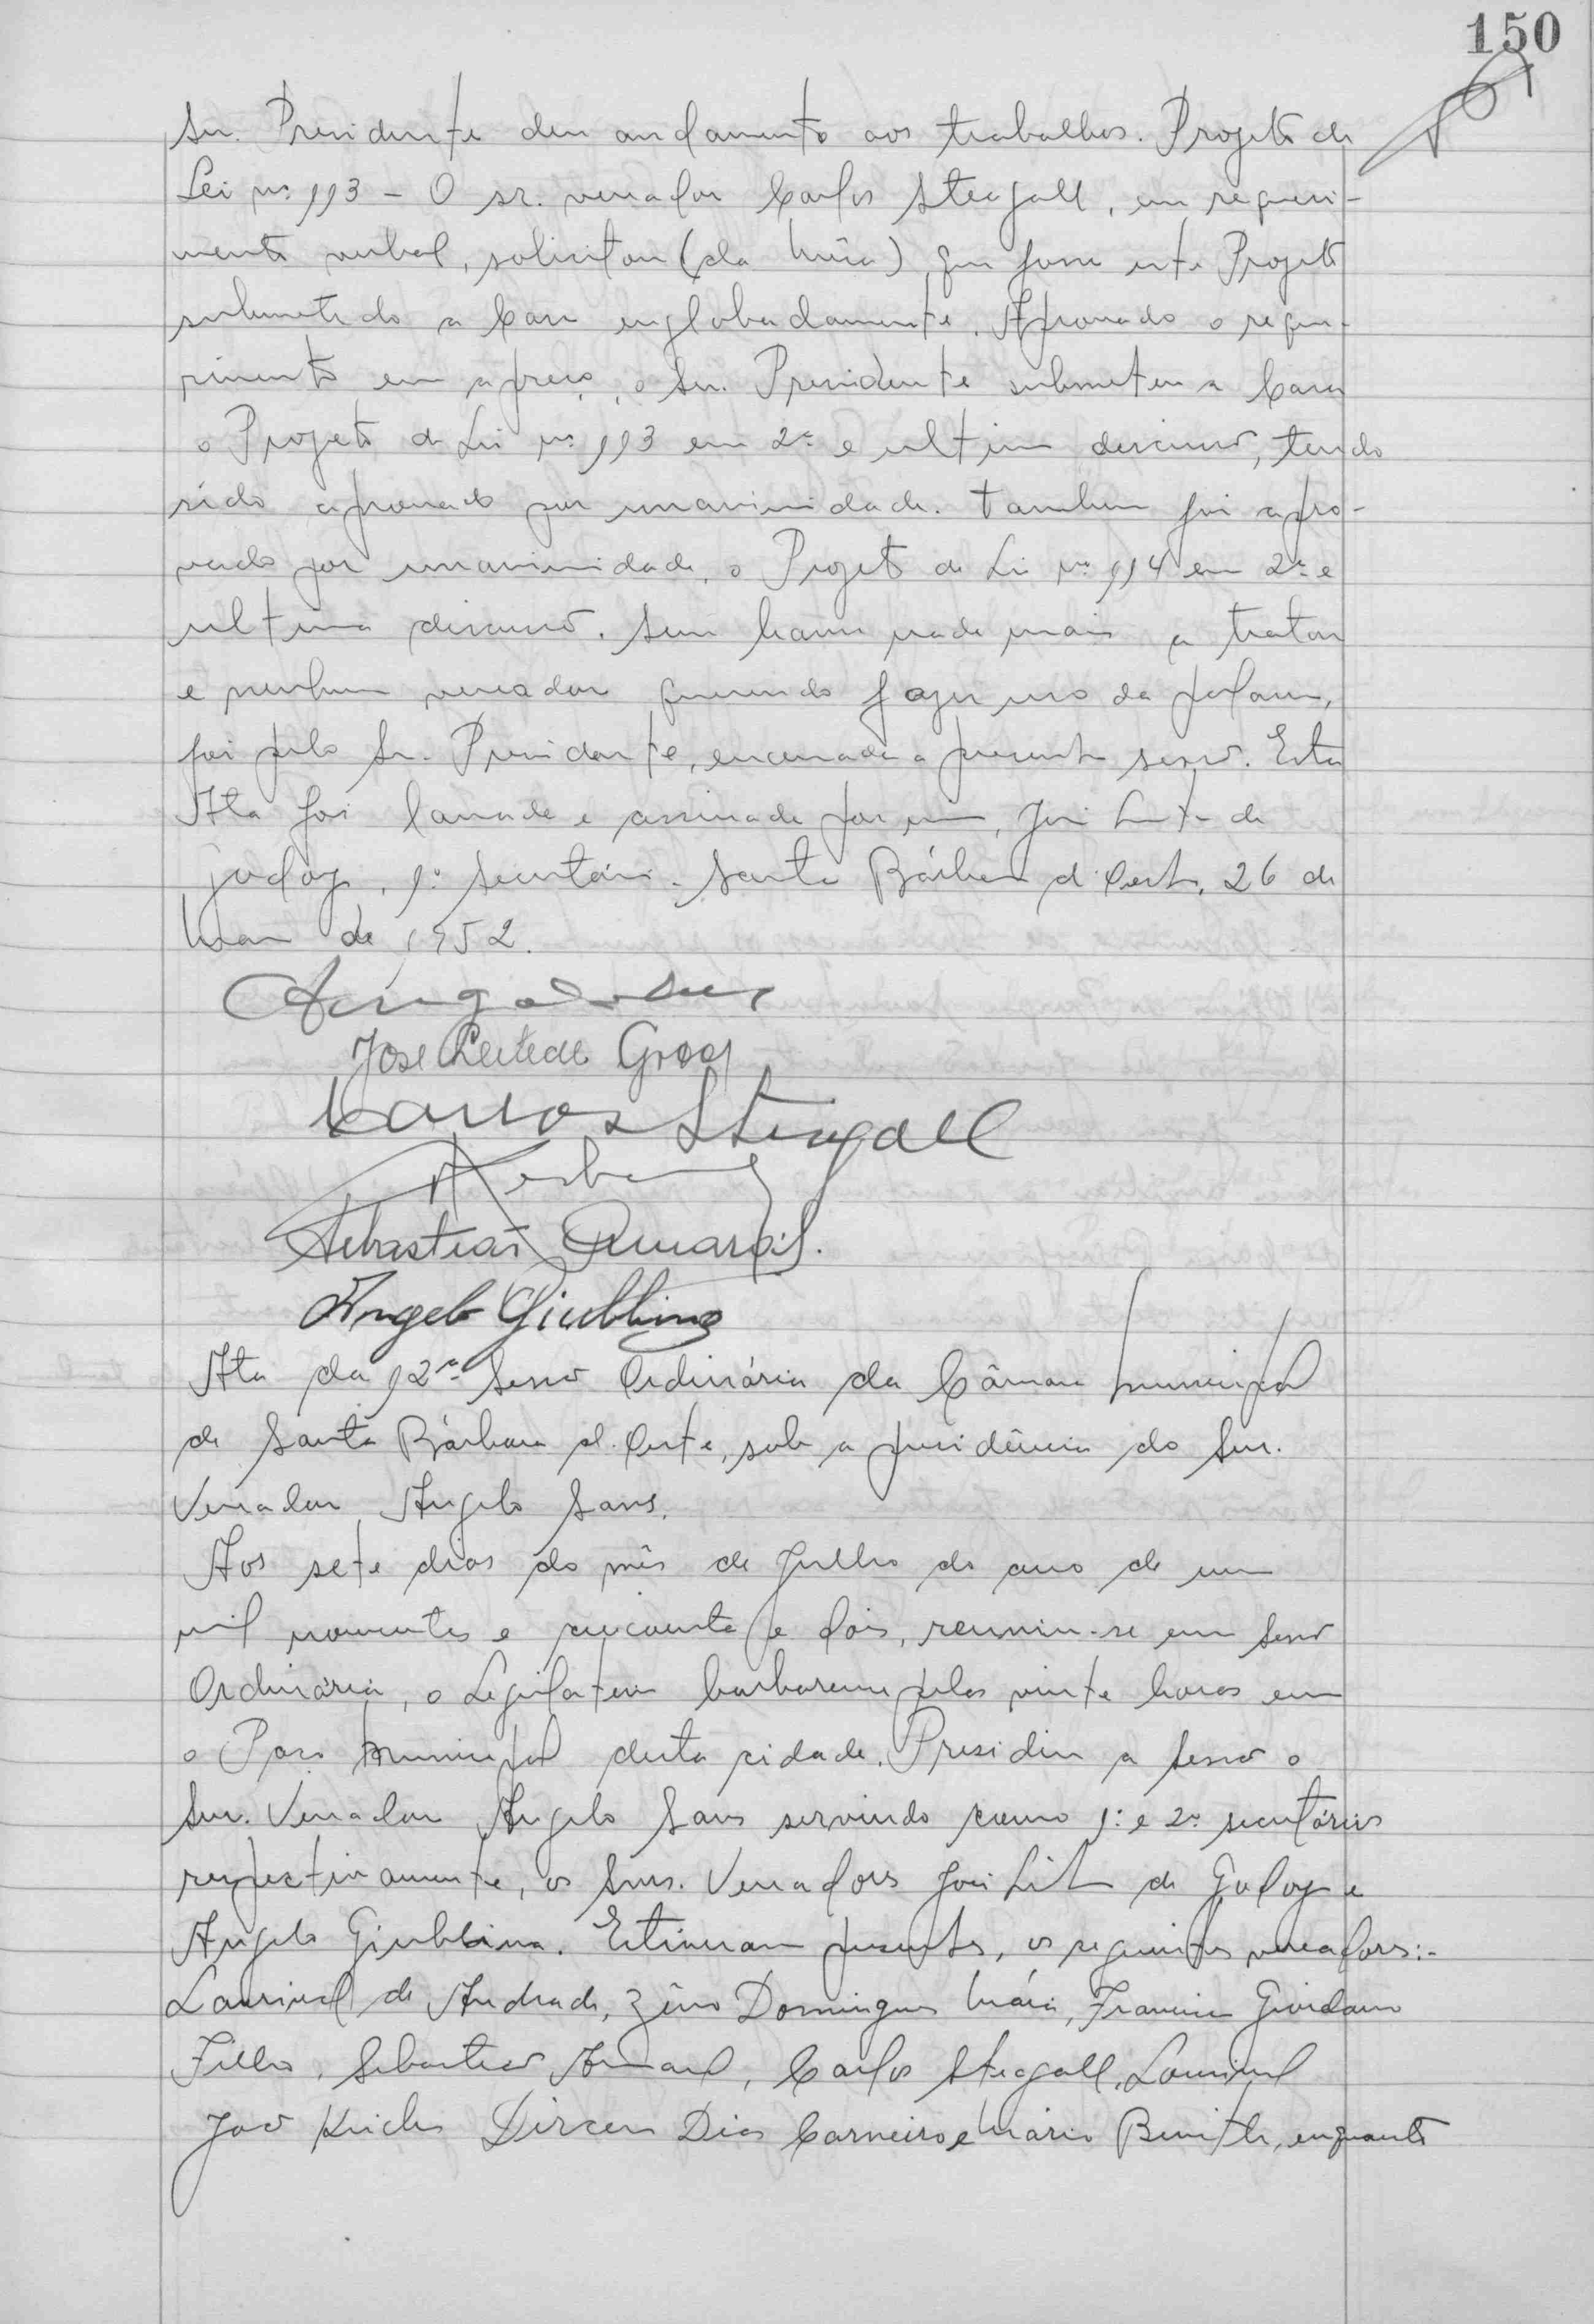 150
Snr. Presidente deu andamento aos trabalhos. Projeto de
Lei nº 113 - O sr. vereador Carlos Steagall, em requeri-
mento verbal, solicitou (da Mesa) que fosse este Projeto
submetido a Casa englobadamente. Aprovado o reque-
rimento em apreço, o Snr. Presidente submeteu a Casa
o Projeto de Lei nº 113 em 2ª e ultima discussão, tendo
sido aprovado por unanimidade. Tambem foi apro-
vado por unanimidade, o Projeto de Lei nº 114 em 2ª e
ultima discussão. Sem haver nada mais a tratar
e nenhum vereador querendo fazer uso da palavra,
foi pelo Sr. Presidente, encerrada a presente sessão. Esta
Ata foi lavrada e assinada por mim, José Leite de
Godoy, 1º Secretário. Santa Bárbara d'Oeste, 26 de
de 1952.
Angelo Sans
José Leite de Godoy
Carlos Steagall
Sebastião
Angelo Giubbina
Ata da 12ª Sessão Ordinária da Câmara Municipal
de Santa Bárbara d'Oeste, sob a presidência do Snr.
Vereador Angelo Sans.
Aos sete dias do mês de Julho do ano de um
mil novecentos e cincoenta e dois, reuniu-se em Sessão
Ordinária, o Legislativo barbarense pelas vinte horas em
o Paço Municipal desta cidade. Presidiu a Sessão o
Snr. Vereador Angelo Sans servindo como 1º e 2º secretários
respectivamente, os Snrs. Vereadores José Leite de Godoy e
Angelo Giubbina. Estiveram presentes, os seguintes vereadores:-
Lourival de Andrade, Zêno Domingues Maia, Francisco Giordano
Filho, Sebastião Amaral, Carlos Steagall, Lourival
João Dirceu Dias Carneiro e Mário, enquanto